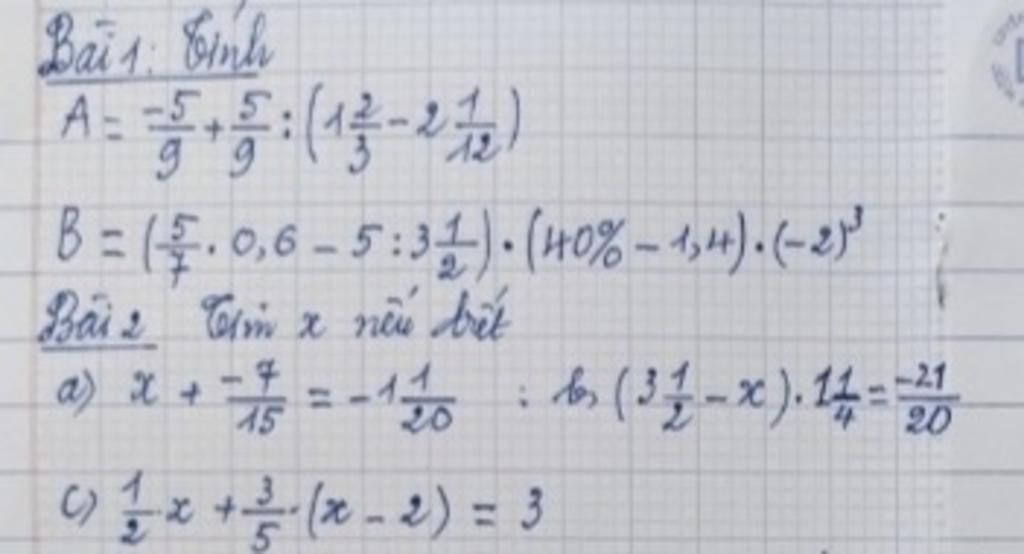 Bài 1: Tính
A = \frac{-5}{9} + \frac{5}{9} : (1\frac{2}{3} - 2\frac{1}{12})
B = (\frac{5}{7} . 0,6 - 5 : 3\frac{1}{2}) . (40% - 1,4) . (-2)^3
Bài 2 Tìm x nếu biết
a) x + \frac{-7}{15} = -1\frac{1}{20} ; b, (3\frac{1}{2} - x) . 1\frac{1}{4} = \frac{-21}{20}
c) \frac{1}{2} x + \frac{3}{5} . (x - 2) = 3